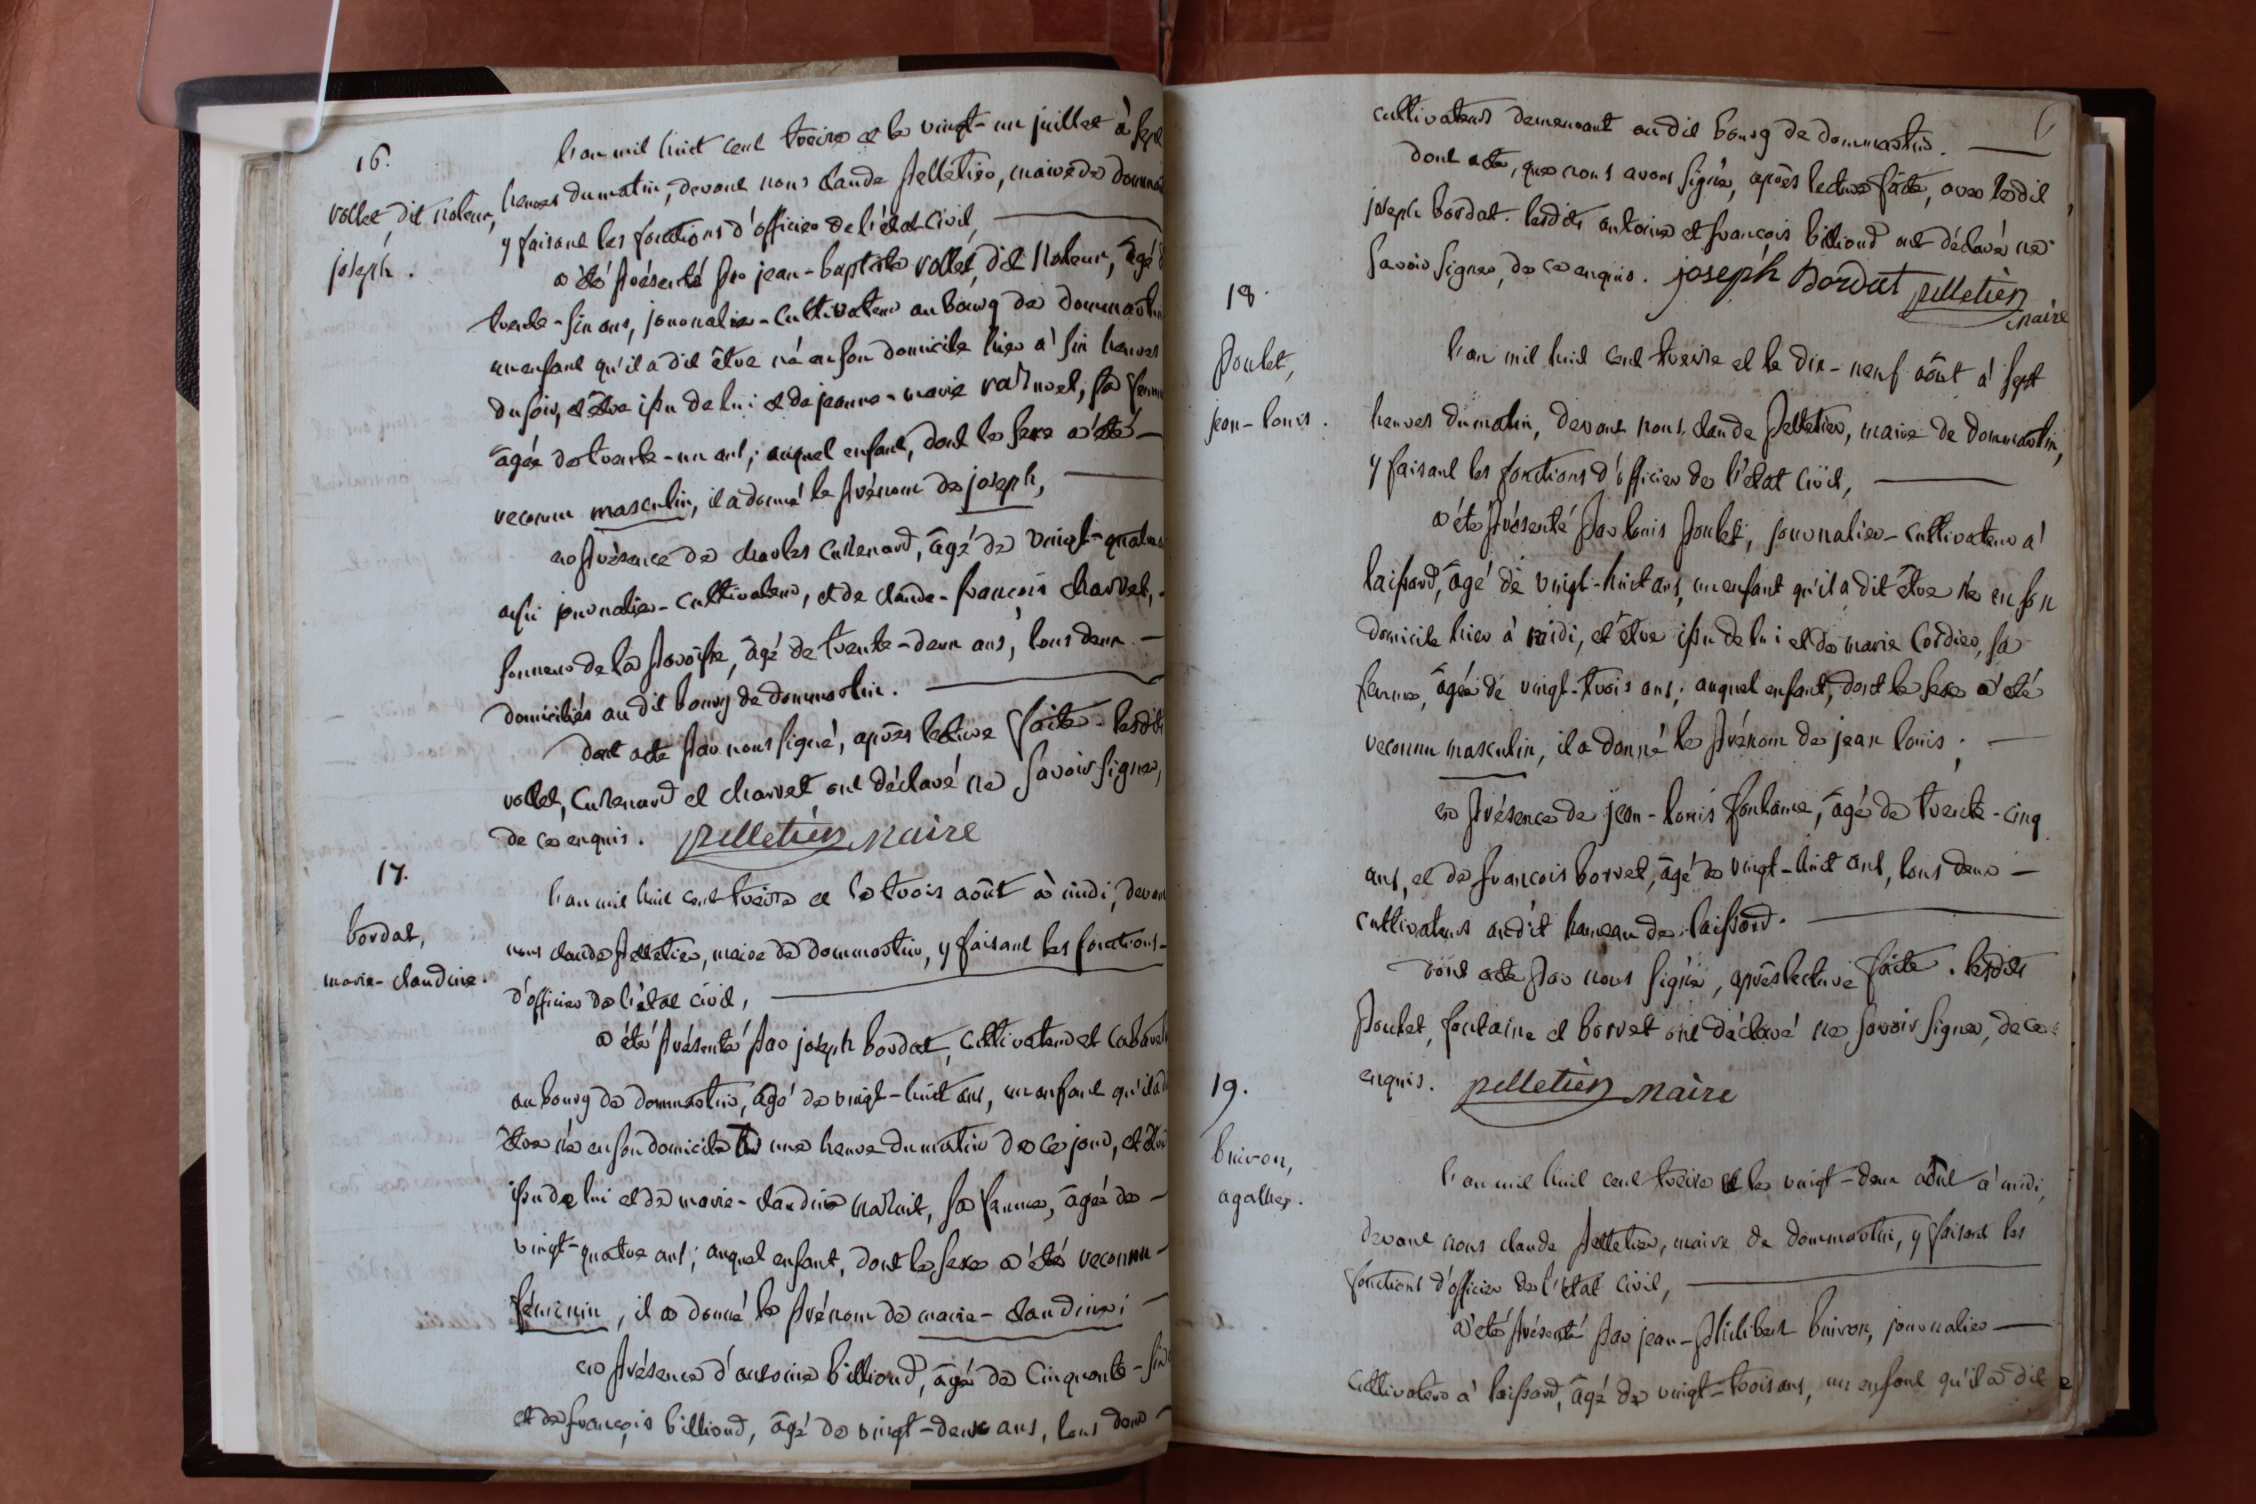 16.
vollet, dit noleur,
joseph.
l'an mil huit cent treize et le vingt-un juillet à sept
heures du matin, devant nous claude pelletier, maire de dommar
y faisant les fonctions d'officier de l'état civil,
a été présenté par jean-baptiste vollet, dit noleur, âgé d
trente-six ans, journalier-cultivateur au bourg de dommartin
un enfant qu'il a dit être né en son domicile hier à six heures
du soir, et être issu de lui et de jeanne-marie sa femme
âgée de trente-un ans; auquel enfant, dont le sexe a été
reconnu masculin, il a donné le prénom de joseph,
en présence de charles cuzenard, âgé de vingt-quatre
ans journalier-cultivateur, et de claude-françois charvet,
sonneur de la paroisse, âgé de trente-deux ans, tous deux
domiciliés au dit bourg de dommartin.
dont acte par nous signé, après lecture faite. lesdits
vollet, cuzenard et charvet ont déclaré ne savoir signer,
de ce enquis. pelletier maire
17.
bordat,
marie-claudine.
l'an mil huit cent treize et le trois août à midi, devant
nous claude pelletier, maire de dommartin, y faisant les fonctions
d'officier de l'état civil,
a été présenté par joseph bordat, cultivateur et cabaret
au bourg de dommartin, âgé de vingt-huit ans, un enfant qu'il a d
être né en son domicile une heure du matin de ce jour, et être
issu de lui et de marie-claudine mazuit, sa femme, âgée de
vingt-quatre ans; auquel enfant, dont le sexe a été reconnu
féminin, il a donné le prénom de marie-claudine;
en présence d'antoine billioud, âgé de cinquante-six
et de françois billioud, âgé de vingt-deux ans, tous deux
6
cultivateurs demeurant au dit bourg de dommartin.
dont acte, que nous avons signé, après lecture faite, avec ledit
joseph bordat. lesdits antoine et françois billioud ont déclaré ne
savoir signer, de ce enquis. joseph Bordat pelletier
maire
18.
poulet,
jean-louis.
l'an mil huit cent treize et le dix-neuf août à sept
heures du matin, devant nous, claude pelletier, maire de dommartin,
y faisant les fonctions d'officier de l'état civil,
a été présenté par louis poulet, journalier-cultivateur à
laissard, âgé de vingt-huit ans, un enfant qu'il a dit être né en son
domicile hier à midi, et être issu de lui et de marie cordier, sa
femme, âgée de vingt-trois ans; auquel enfant, dont le sexe a été
reconnu masculin, il a donné le prénom de jean louis;
en présence de jean-louis fontaine, âgé de trente-cinq
ans, et de françois borvet, âgé de vingt-huit ans, tous deux
cultivateurs audit hameau de laissard.
dont acte par nous signé, après lecture faite. lesdits
poulet, fontaine et borvet ont déclaré ne savoir signer, de ce
enquis. pelletier maire
19.
buiron,
agathe.
l'an mil huit cent treize et le vingt-deux août à midi,
devant nous claude pelletier, maire de dommartin, y faisant les
fonctions d'officier de l'état civil,
a été présenté par jean-philibert buiron, journalier
cultivateur à laissard, âgé de vingt-trois ans, un enfant qu'il a dit